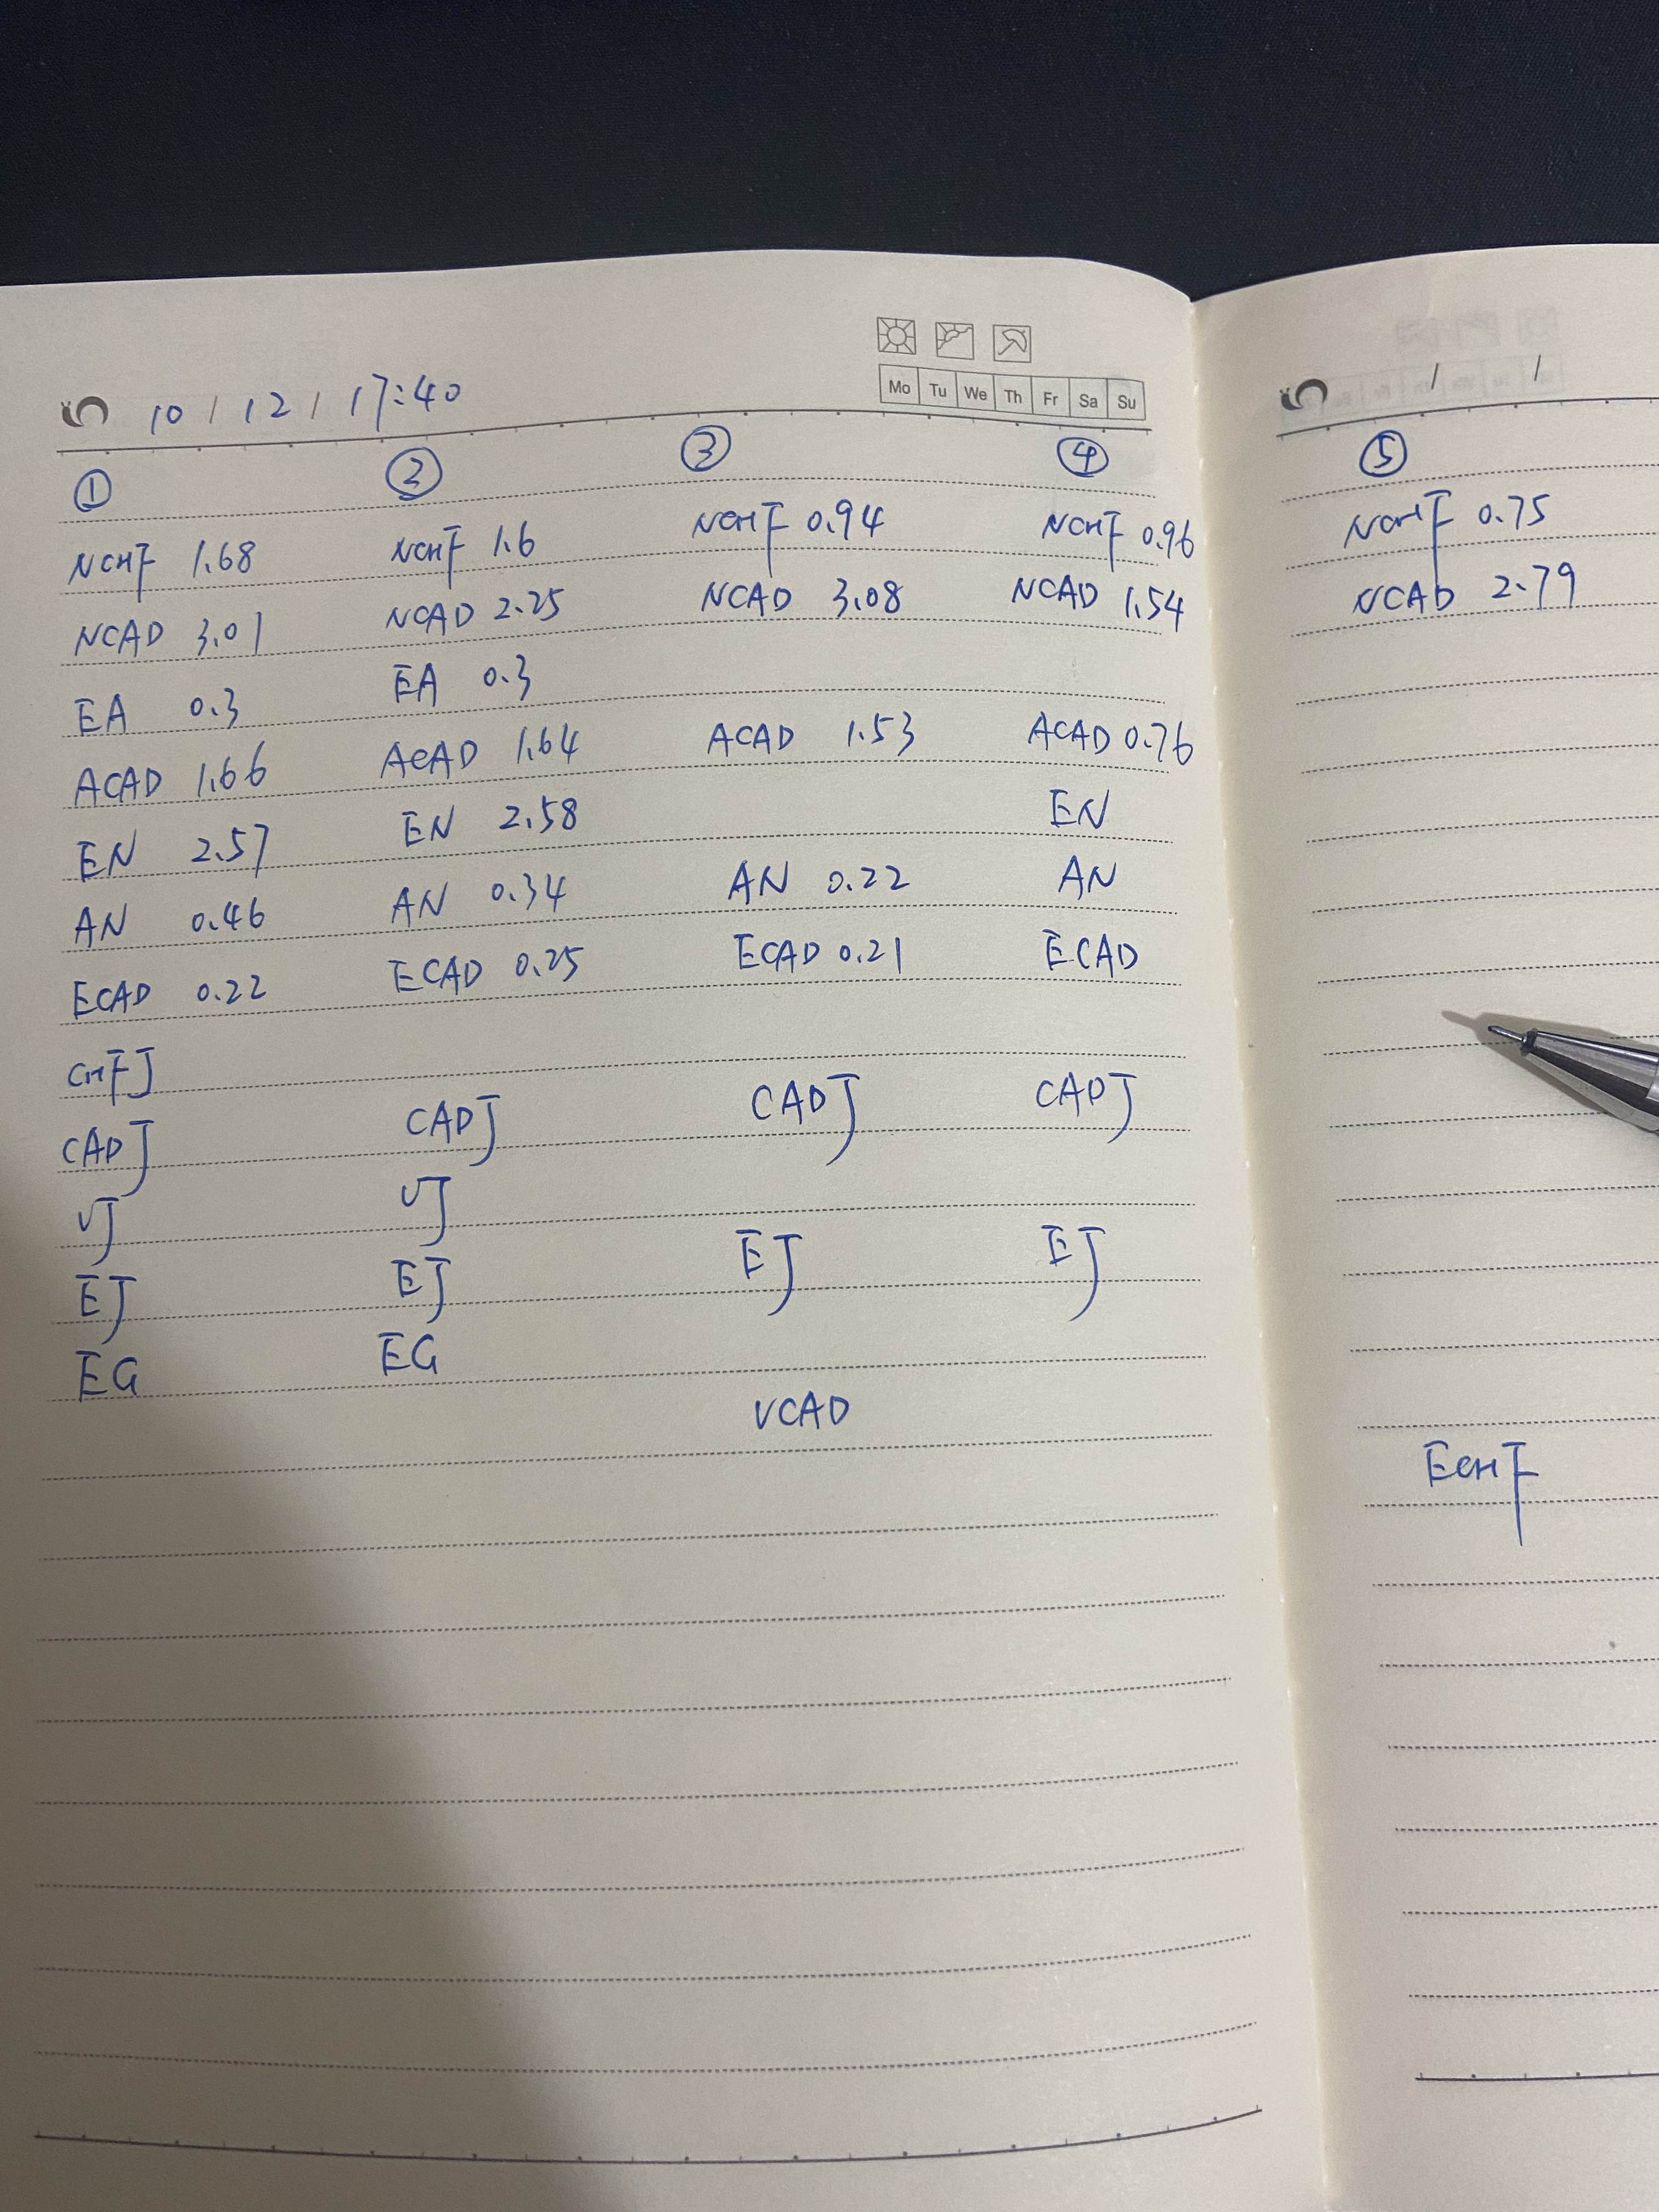 Mo Tu We Th Fr Sa Su
10 / 12 / 17:40
/ /
① ② ③ ④ ⑤
NCHF 1.68 NCHF 1.6 NCHF 0.94 NCHF 0.96 NCHF 0.75
NCAD 3.01 NCAD 2.25 NCAD 3.08 NCAD 1.54 NCAD 2.79
EA 0.3 EA 0.3
ACAD 1.66 ACAD 1.64 ACAD 1.53 ACAD 0.76
EN 2.57 EN 2.58 EN
AN 0.46 AN 0.34 AN 0.22 AN
ECAD 0.22 ECAD 0.25 ECAD 0.21 ECAD
CHFJ
CADJ CADJ CADJ CADJ
UJ UJ
EJ EJ EJ EJ
EG EG
VCAD
ECHF